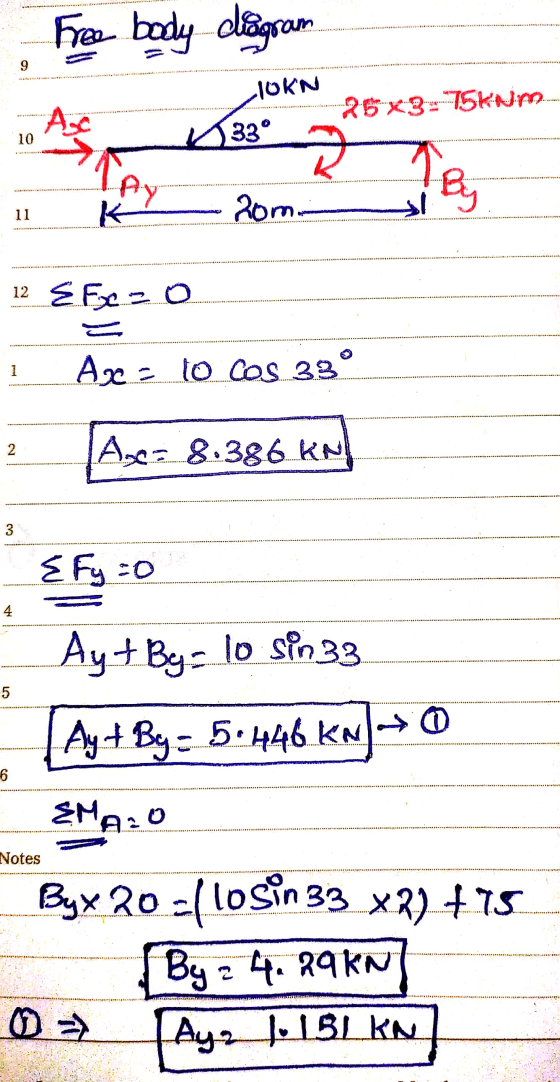 Free body diagram
9
10KN
25×3=75KNm
Ax
33°
10
Ay
By
20m
11
12 ΣFx = 0
1 Ax = 10 cos 33°
2 Ax = 8.386 KN
3
ΣFy = 0
4
Ay + By = 10 sin 33
5
Ay + By = 5.446 KN → ①
6
ΣMA = 0
Notes
By × 20 = (10 sin 33 × 2) + 75
By = 4.29 KN
① ⇒ Ay = 1.151 KN